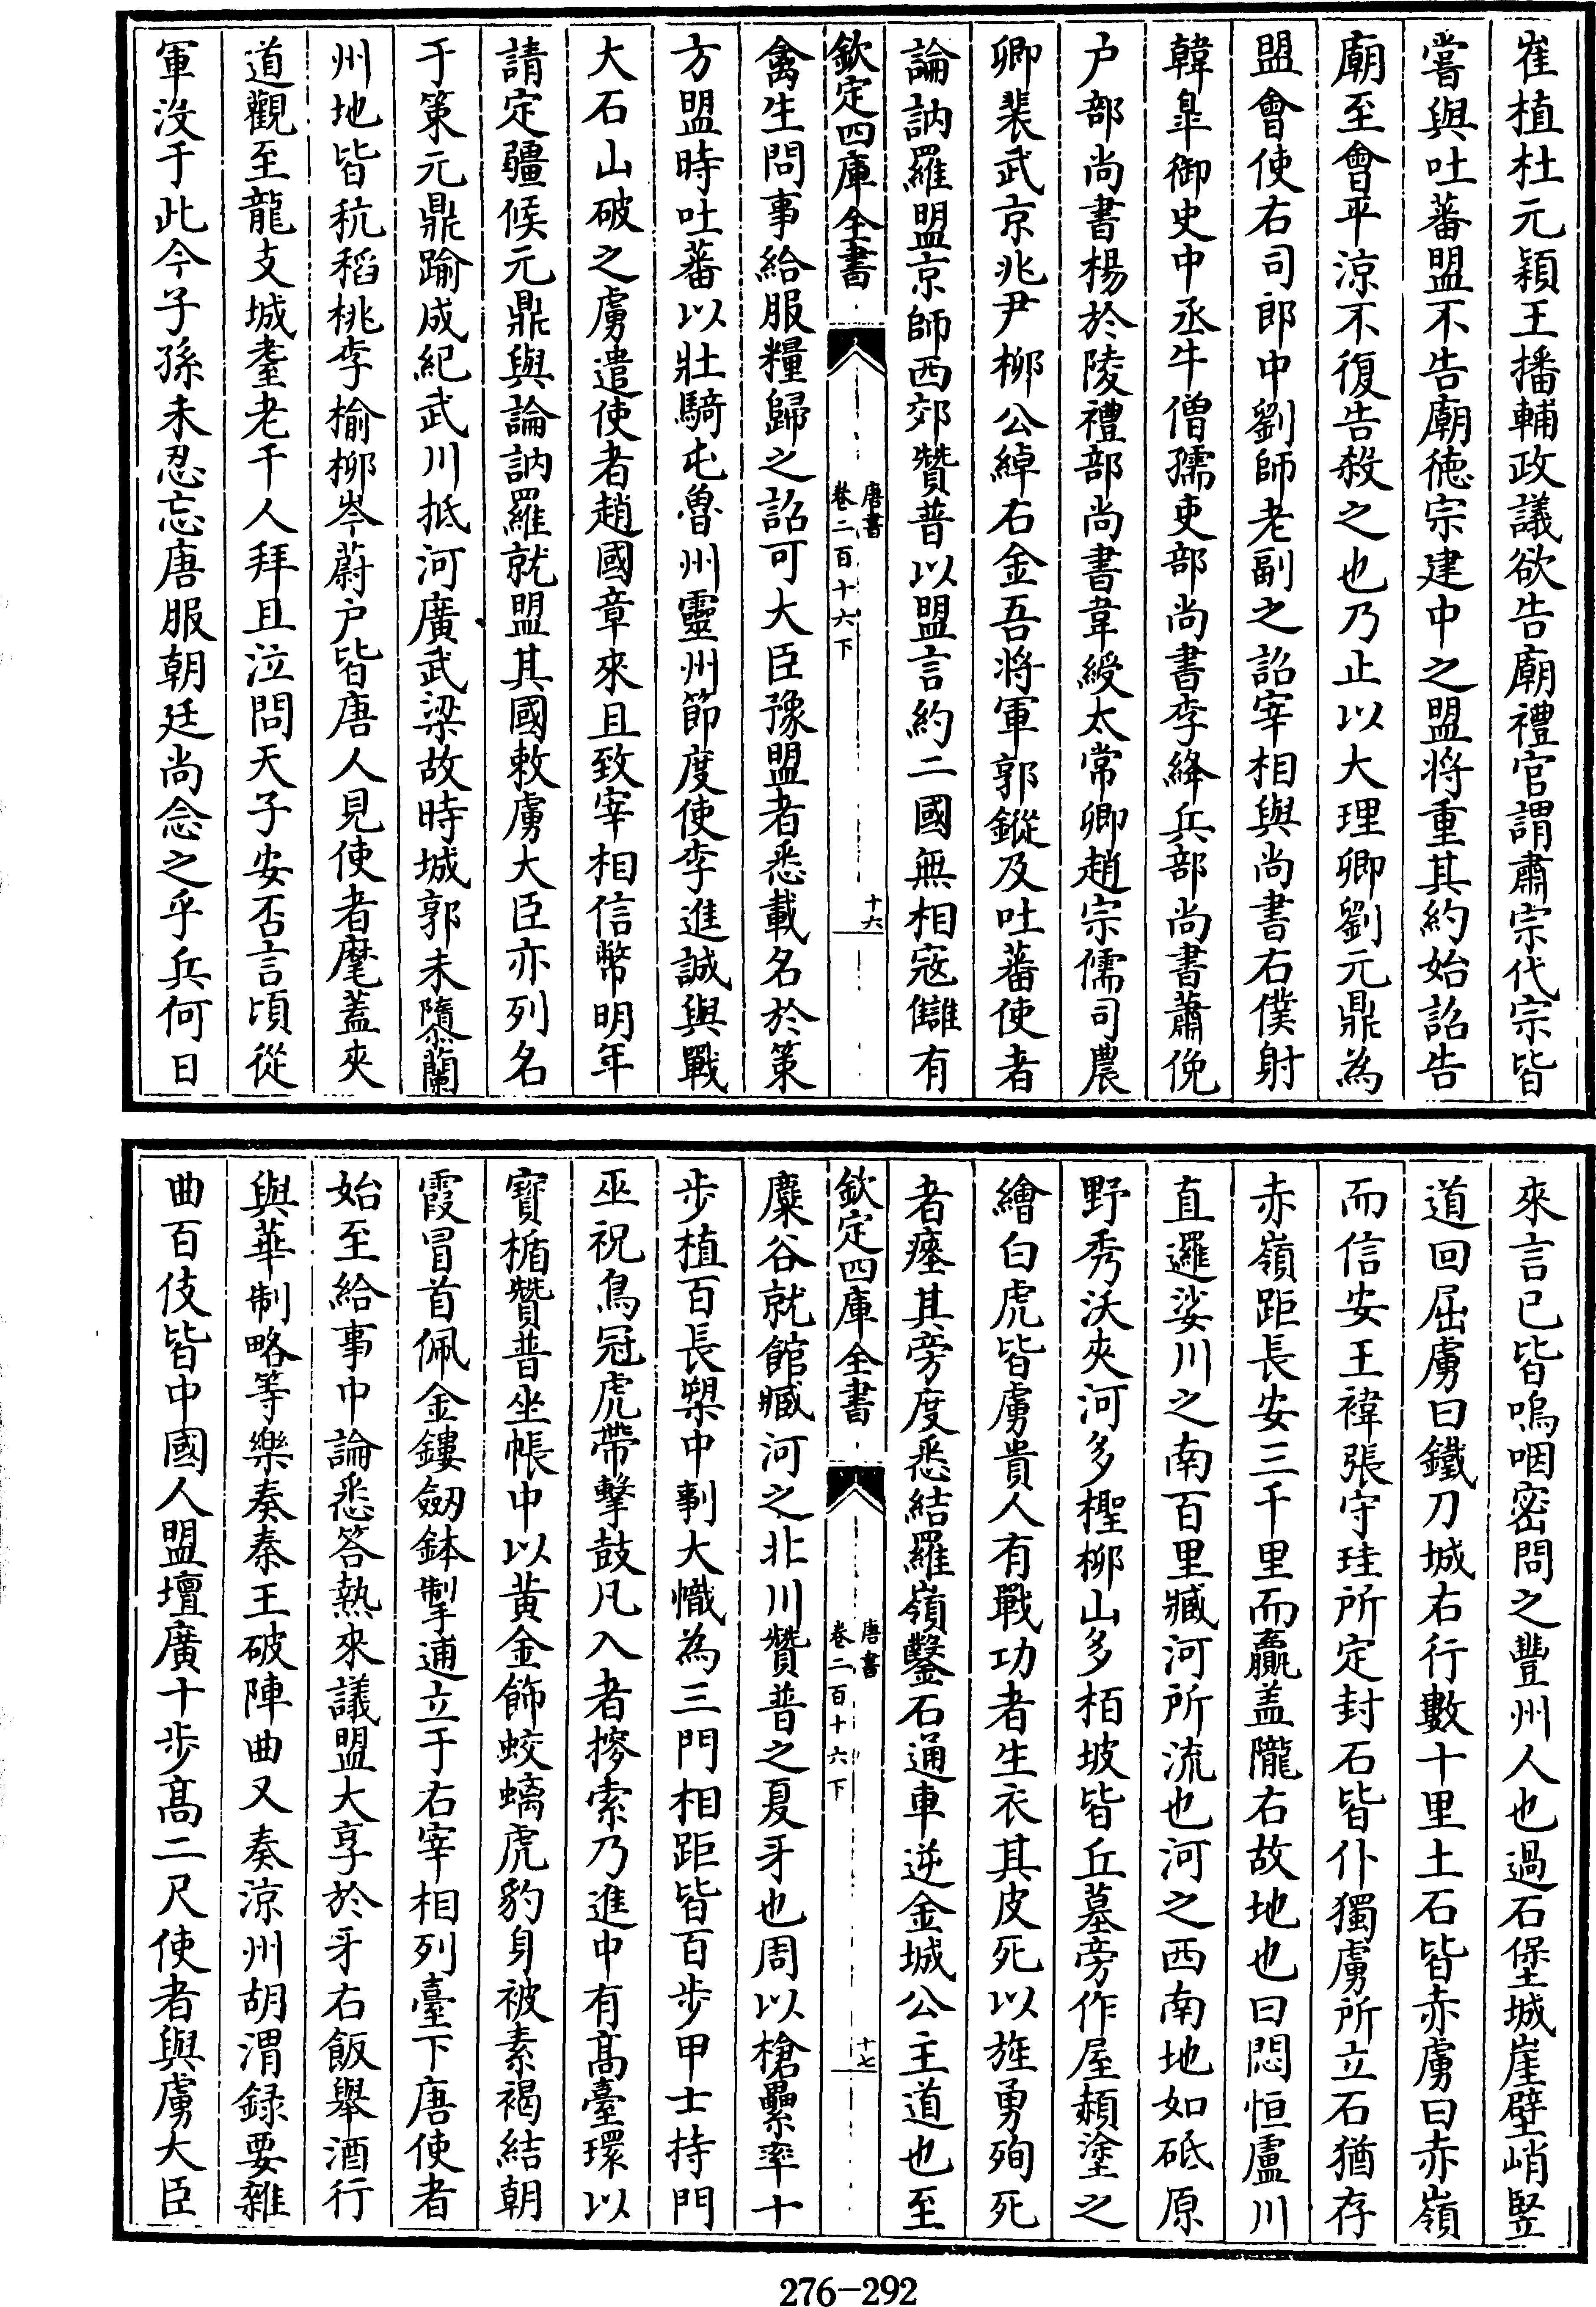 崔植杜元穎王播輔政議欲告廟禮官謂肅宗代宗皆
嘗與吐蕃盟不告廟德宗建中之盟將重其約始詔告
廟至會平涼不復告殺之也乃止以大理卿劉元鼎為
盟會使右司郎中劉師老副之詔宰相與尚書右僕射
韓臯御史中丞牛僧孺吏部尚書李絳兵部尚書蕭俛
户部尚書楊於陵禮部尚書韋綬太常卿趙宗儒司農
卿裴武京兆尹柳公綽右金吾將軍郭鏦及吐蕃使者
論訥羅盟京師西郊贊普以盟言約二國無相寇讎有
欽定四庫全書
唐書
卷二百十六下
十六
禽生問事給服糧歸之詔可大臣豫盟者悉載名於策
方盟時吐蕃以壯騎屯魯州靈州節度使李進誠與戰
大石山破之虜遣使者趙國章來且致宰相信幣明年
請定疆候元鼎與論訥羅就盟其國敕虜大臣亦列名
于策元鼎踰成紀武川抵河廣武梁故時城郭未隳蘭
州地皆秔稻桃李榆柳岑蔚户皆唐人見使者麾蓋夾
道觀至龍支城耋老千人拜且泣問天子安否言頃從
軍没于此今子孫未忍忘唐服朝廷尚念之乎兵何日
來言已皆嗚咽密問之豐州人也過石堡城崖壁峭竪
道回屈虜曰鐵刀城右行數十里土石皆赤虜曰赤嶺
而信安王禕張守珪所定封石皆仆獨虜所立石猶存
赤嶺距長安三千里而贏盖隴右故地也曰悶恒盧川
直邏娑川之南百里臧河所流也河之西南地如砥原
野秀沃夾河多檉柳山多柏坡皆丘墓旁作屋赬塗之
繪白虎皆虜貴人有戰功者生衣其皮死以旌勇殉死
者瘞其旁度悉結羅嶺鑿石通車逆金城公主道也至
欽定四庫全書
唐書
卷二百十六下
十七
麋谷就館臧河之北川贊普之夏牙也周以槍纍率十
步植百長槊中剚大幟為三門相距皆百步甲士持門
巫祝鳥冠虎帶擊鼓凡入者搜索乃進中有髙臺環以
寳楯贊普坐帳中以黄金飾蛟螭虎豹身被素褐結朝
霞冒首佩金鏤劒鉢掣逋立于右宰相列臺下唐使者
始至給事中論悉答熱來議盟大享於牙右飯舉酒行
與華制略等樂奏秦王破陣曲又奏涼州胡渭録要雜
曲百伎皆中國人盟壇廣十步髙二尺使者與虜大臣
276-292